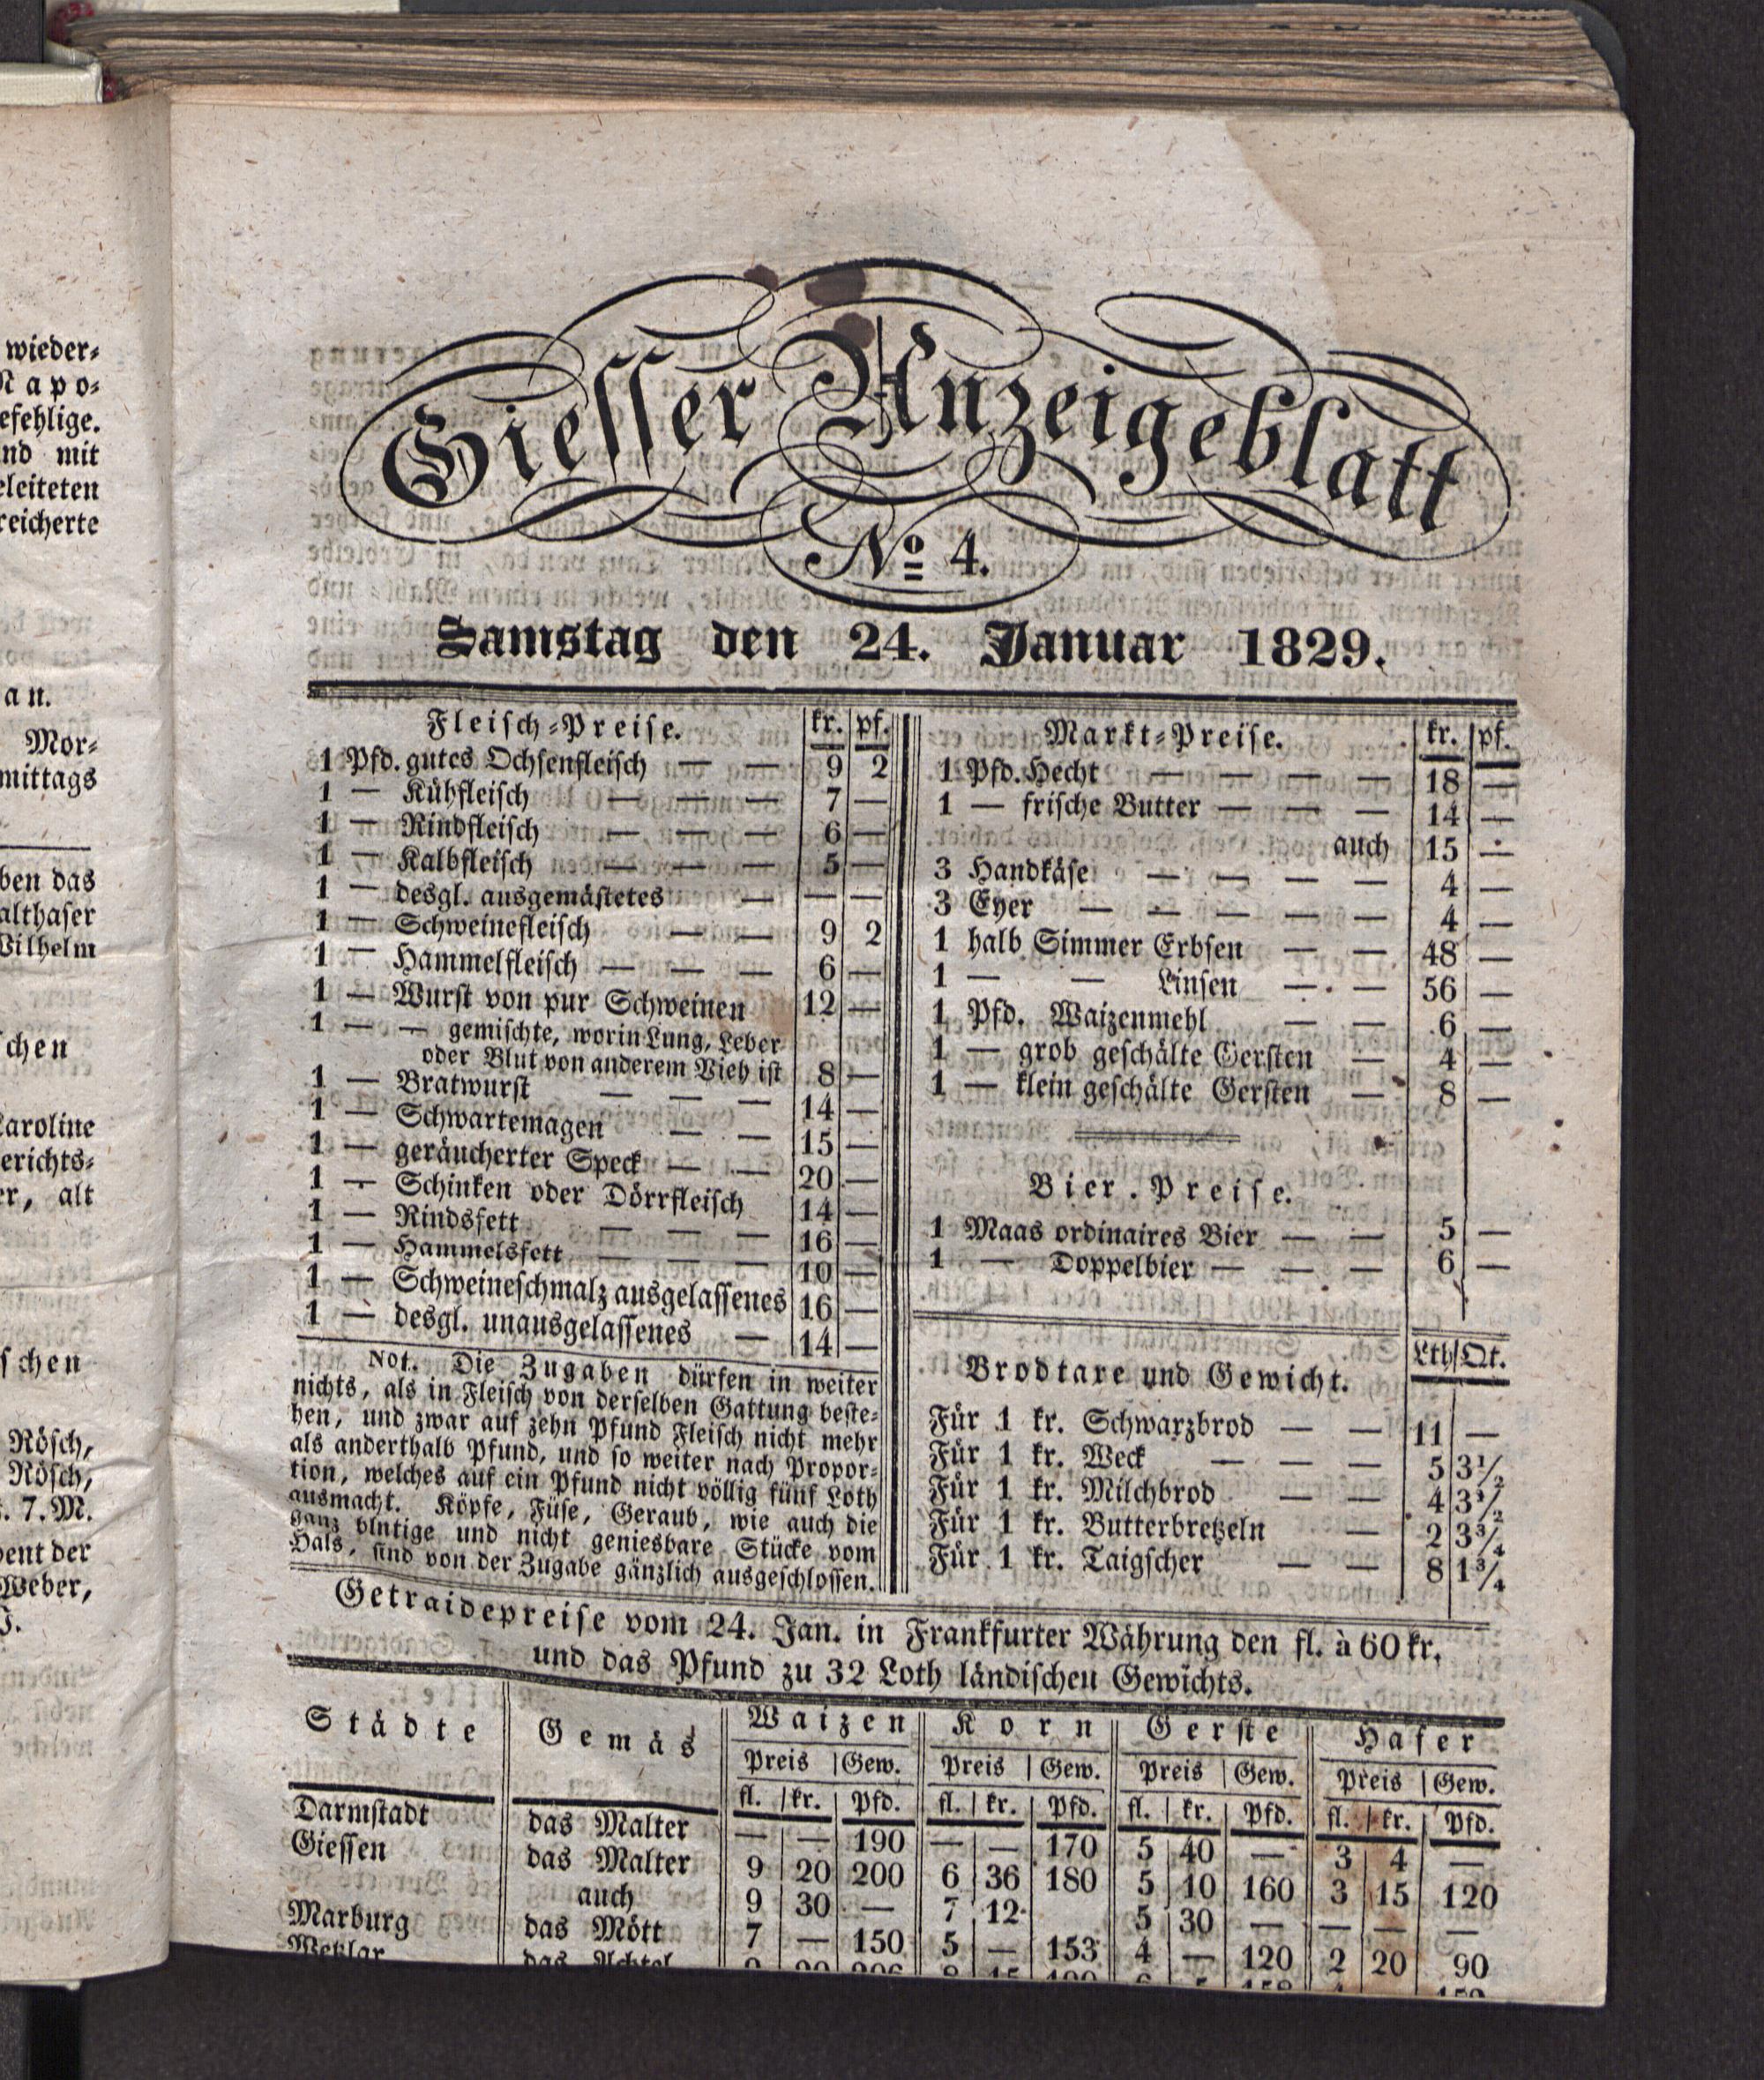 wieder-
Napo-
efehlige.
nd mit
eleiteten
reicherte
an.
Mor-
mittags
ben das
althaser
Wilhelm
schen
Caroline
erichts-
er, alt
schen
Rösch,
Rösch,
. 7. M.
dent der
Weber,
Giesser Anzeigeblatt
No 4.
Samstag den 24. Januar 1829.
Fleisch-Preise. kr. pf.
1 Pfd. gutes Ochsenfleisch — — 9 2
1 — Kühfleisch — — — 7 —
1 — Rindfleisch — — — 6 —
1 — Kalbfleisch — — — 5 —
1 — desgl. ausgemästetes — — —
1 — Schweinefleisch — — 9 2
1 — Hammelfleisch — — — 6 —
1 — Wurst von pur Schweinen 12 —
1 — — gemischte, worin Lung, Leber
oder Blut von anderem Vieh ist 8 —
1 — Bratwurst — — — 14 —
1 — Schwartemagen — — 15 —
1 — geräucherter Speck — — 20 —
1 — Schinken oder Dörrfleisch 14 —
1 — Rindsfett — — — 16 —
1 — Hammelsfett — — — 10 —
1 — Schweineschmalz ausgelassenes 16 —
1 — desgl. unausgelassenes — 14 —
Not. Die Zugaben dürfen in weiter
nichts, als in Fleisch von derselben Gattung beste-
hen, und zwar auf zehn Pfund Fleisch nicht mehr
als anderthalb Pfund, und so weiter nach Propor-
tion, welches auf ein Pfund nicht völlig fünf Loth
ausmacht. Köpfe, Füse, Geraub, wie auch die
ganz blutige und nicht geniesbare Stücke vom
Hals, sind von der Zugabe gänzlich ausgeschlossen.
Markt-Preise. kr. pf.
1 Pfd. Hecht — — — — 18 —
1 — frische Butter — — — 14 —
auch 15 —
3 Handkäse — — — — 4 —
3 Eyer — — — — — 4 —
1 halb Simmer Erbsen — — 48 —
1 — — Linsen — — 56 —
1 Pfd. Waizenmehl — — 6 —
1 — grob geschälte Gersten — 4 —
1 — klein geschälte Gersten — 8 —
Bier-Preise.
1 Maas ordinaires Bier — — 5 —
1 — Doppelbier — — — 6 —
Brodtaxe und Gewicht. Lth Qt.
Für 1 kr. Schwarzbrod — — 11 —
Für 1 kr. Weck — — — 5 3½
Für 1 kr. Milchbrod — — 4 3½
Für 1 kr. Butterbretzeln — 2 3¾
Für 1 kr. Taigscher — — 8 1¾
Getraidepreise vom 24. Jan. in Frankfurter Währung den fl. à 60 kr.
und das Pfund zu 32 Loth ländischen Gewichts.
Städte Gemäs Waizen Korn Gerste Hafer
Preis Gew. Preis Gew. Preis Gew. Preis Gew.
fl. kr. Pfd. fl. kr. Pfd. fl. kr. Pfd. fl. kr. Pfd.
Darmstadt das Malter — — 190 — — 170 5 40 — 3 4 —
Giessen das Malter 9 20 200 6 36 180 5 10 160 3 15 120
auch 9 30 — 7 12 5 30 — — — —
Marburg das Mött 7 — 150 5 — 153 4 — 120 2 20 90
Wetzlar das Achtel